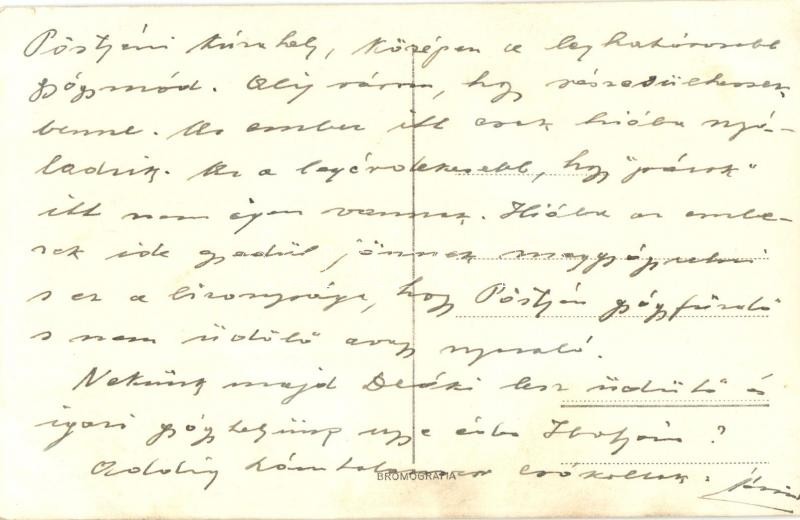 Pöstjéni kúra hely, középen a leghatásosabb
gyógymód. Alig várom, hogy részesülhessek
benne. Az ember itt csak hiába nyá-
ladzik. Az a legérdekesebb, hogy "párok"
itt nem igen vannak. Hiába az embe-
rek ide egyedül jönnek meggyógyulni
s ez a bizonysága, hogy Pöstjén gyógyfürdő
s nem üdülő avagy nyaraló.
Nekünk majd Deáki lesz üdülő és
igazi gyógyhelyünk ugye édes Ibolyám?
Addig számtalanszor csókollak.
BROMOGRAFIA